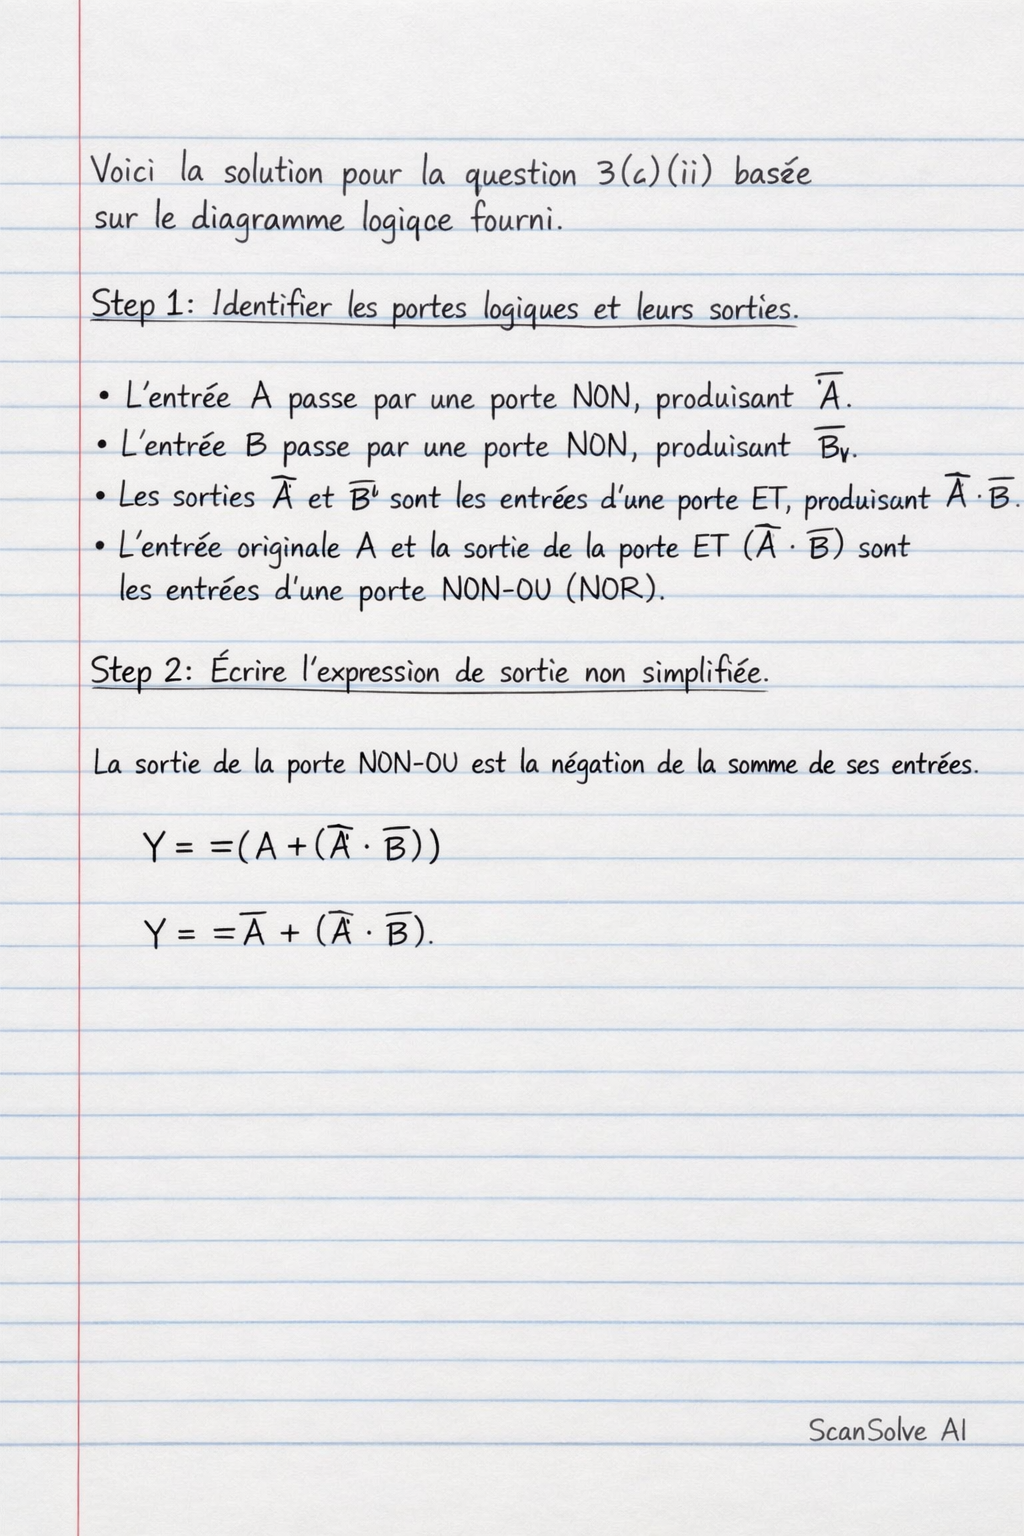 Voici la solution pour la question 3(c)(ii) basée
sur le diagramme logiqce fourni.
Step 1: Identifier les portes logiques et leurs sorties.
• L'entrée A passe par une porte NON, produisant A̅.
• L'entrée B passe par une porte NON, produisant B̅v.
• Les sorties A̅ et B̅ᶫ sont les entrées d'une porte ET, produisant A̅ · B̅.
• L'entrée originale A et la sortie de la porte ET (A̅ · B̅) sont
les entrées d'une porte NON-OU (NOR).
Step 2: Écrire l'expression de sortie non simplifiée.
La sortie de la porte NON-OU est la négation de la somme de ses entrées.
Y = =(A + (A̅ · B̅))
Y = =A̅ + (A̅ · B̅).
ScanSolve AI